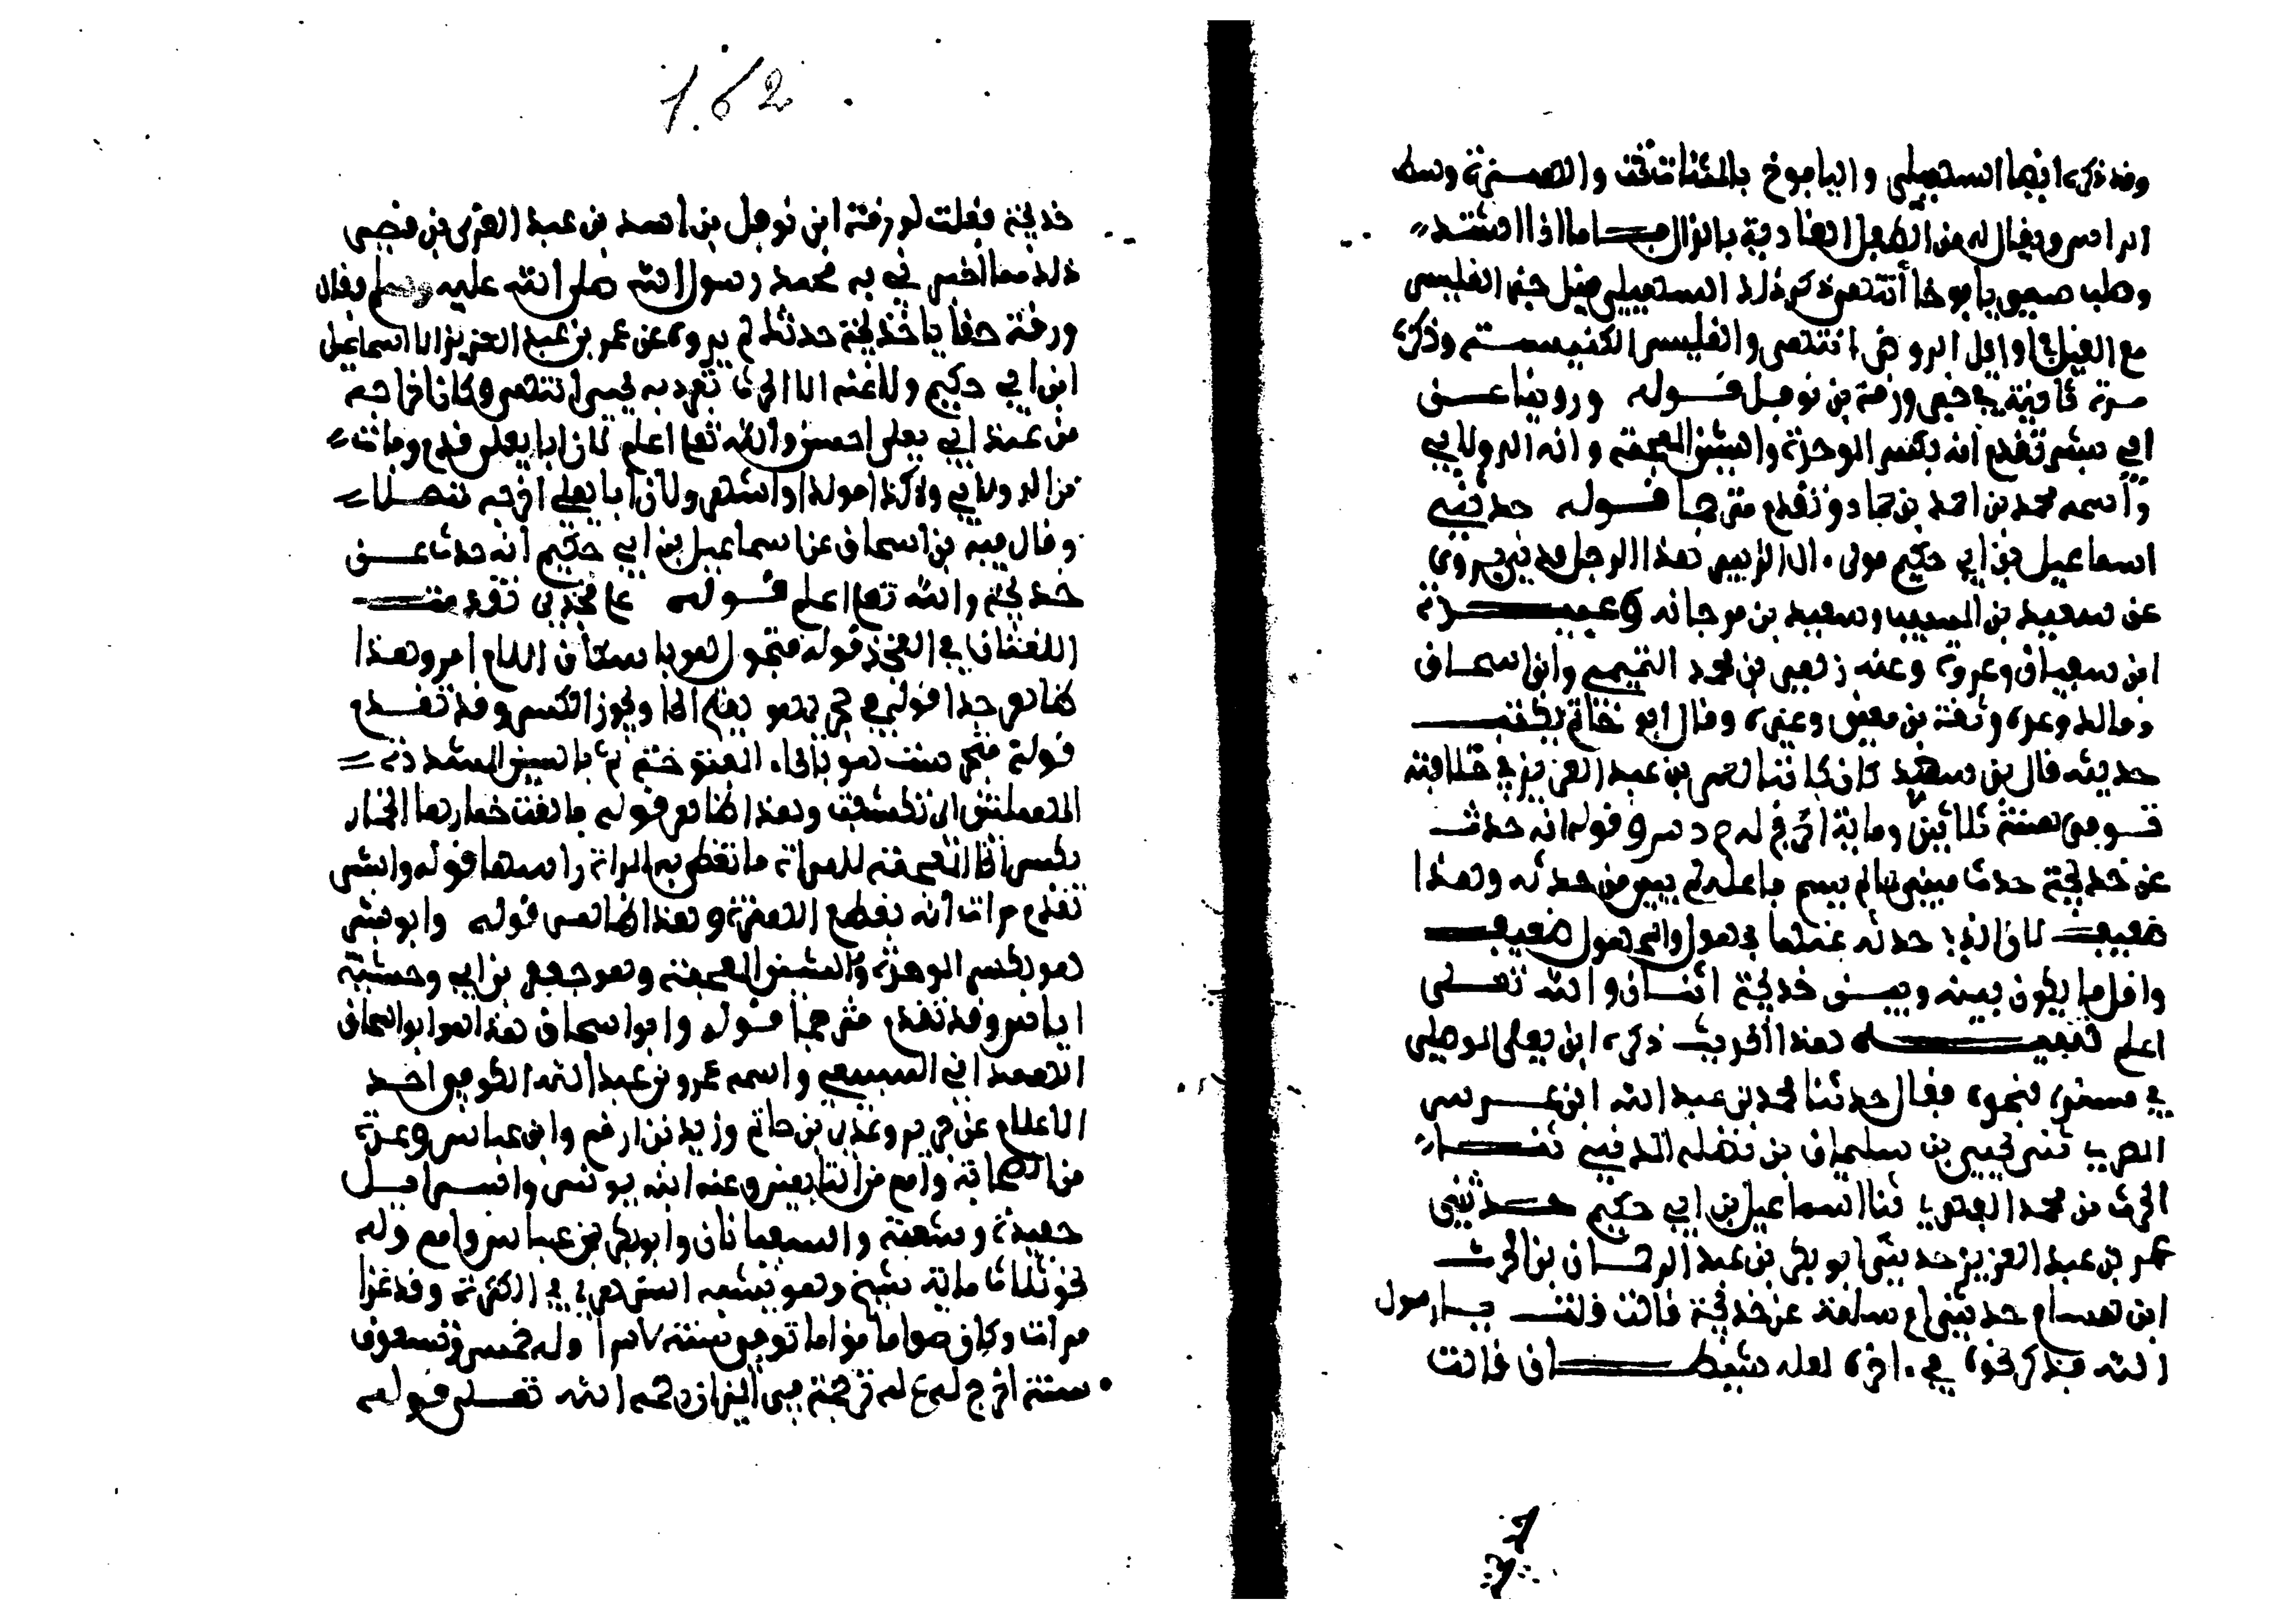 وقد ذكره ايضا السهيلي واليافوخ بالمثناة تحت والهمزة وسط
الراس ويقال له من الطفل الغاذية بالذال فاما اذا اشتد
وصلب سمي يافوخا انتهى ذكر ذلك السهيلي قبيل خبر القليس
مع الفيل في اوايل الروض انتهى والقليس الكنيسة وذكره
مرة ثانية في خبر ورقة بن نوفل قوله وروينا عن
ابي بشر تقدم انه بكسر الموحدة والشين المعجمة وانه الدولابي
واسمه محمد بن احمد بن حماد وتقدم مترجما قوله حدثني
اسماعيل بن ابي حكيم مولى ال الزبير هذا الرجل مدني يروي
عن سعيد بن المسيب وسعيد بن مرجانه وعبيدة
ابن سفيان وعروة وعنه زهير بن محمد التميمي وابن اسحاق
ومالك وعدة وثقة بن معين وغيره وقال ابو حاتم يكتب
حديثه قال بن سعد كان كاتبا لعمر بن عبد العزيز في خلافته
توفي سنة ثلاثين وماية اخرج له م د س ق قوله انه حدث
عن خديجة حدث مبني لما لم يسم فاعله لم يبين من حدثه وهذا
ضعيف لان الذي حدثه عنها مجهول والمجهول ضعيف
واقل ما يكون بينه وبين خديجة اثنان والله تعلى
اعلم تنبيه هذا الحديث ذكره ابن يعلى الموصلي
في مسنده بنحوه فقال حدثنا محمد بن عبد الله ابن
ثني يحيى بن سليمان بن نضله المدني ثنا
الحرث بن محمد الفهري ثنا اسماعيل بن ابي حكيم حدثني
عمر بن عبد العزيز حدثني ابو بكر بن عبد الرحمان بن الحرث
ابن هسام حدثني ام سلمة عن خديجة قالت قلت يا رسول
الله فذكر نحوه في اخره لعله شيطان قالت
1.62
خديجة فقلت لورقة ابن نوفل بن اسد بن عبد العزى بن قصي
ذلك مما اخبرني به محمد رسول الله صلى الله عليه وسلم فقال
ورقة حقا يا خديجة حدثك لم يروه عن عمر بن عبد العزيز الا اسماعيل
ابن ابي حكيم ولا عنه الا الحرث تفرد به يحيى انتهى وكان اخراجه
من عند ابي يعلى احسن والله تعا اعلم لان ابا يعلى قدم ومات
من الدولابي ولاكذا مولدا واشهر ولان ابا يعلى اخرجه متصلا
وقال فيه بن اسحاق عن اسماعيل بن ابي حكيم انه حدث عن
خديجة والله تعا اعلم قوله على فخذي تقدمت
اللغتان في الفخذ قوله فتحول هو باسكان اللام امر وهذا
ظاهر جدا قوله في حجري هو بفتح الحا ويجوز الكسر وقد تقدم
قوله فتحسرت هو بالحا المهملة ثم بالسين المشددة
المهملتين اي تكشفت وهذا ظاهر قوله فالقت خمارها الخمار
بكسر الخا المعجمة للمراة ما تغطي به المراة راسها قوله وابشر
تقدم مرات انه بقطع الهمزة وهذا ظاهر قوله وابو بشر
هو بكسر الموحدة والشين المعجمة وهو جعفر بن ابي وحشية
اياس وقد تقدم مترجما قوله وابو اسحاق هذا هو ابو اسحاق
الهمداني السبيعي واسمه عمرو بن عبد الله الكوفي احد
الاعلام عن جرير وعدي بن حاتم وزيد بن ارقم وابن عباس وعدة
من الصحابة وامم من التابعين وعنه ابنه يونس واسراييل
حفيده وشعبة والسفيانان وابو بكر بن عياش وامم وله
نحو ثلاث ماية شيخ وهو يشبه الزهري في الكثرة وقد غزا
مرات وكان صواما قواما توفي سنة وله خمس وتسعون
سنة اخرج له ع له ترجمة في الميزان رحمه الله تعلى قوله